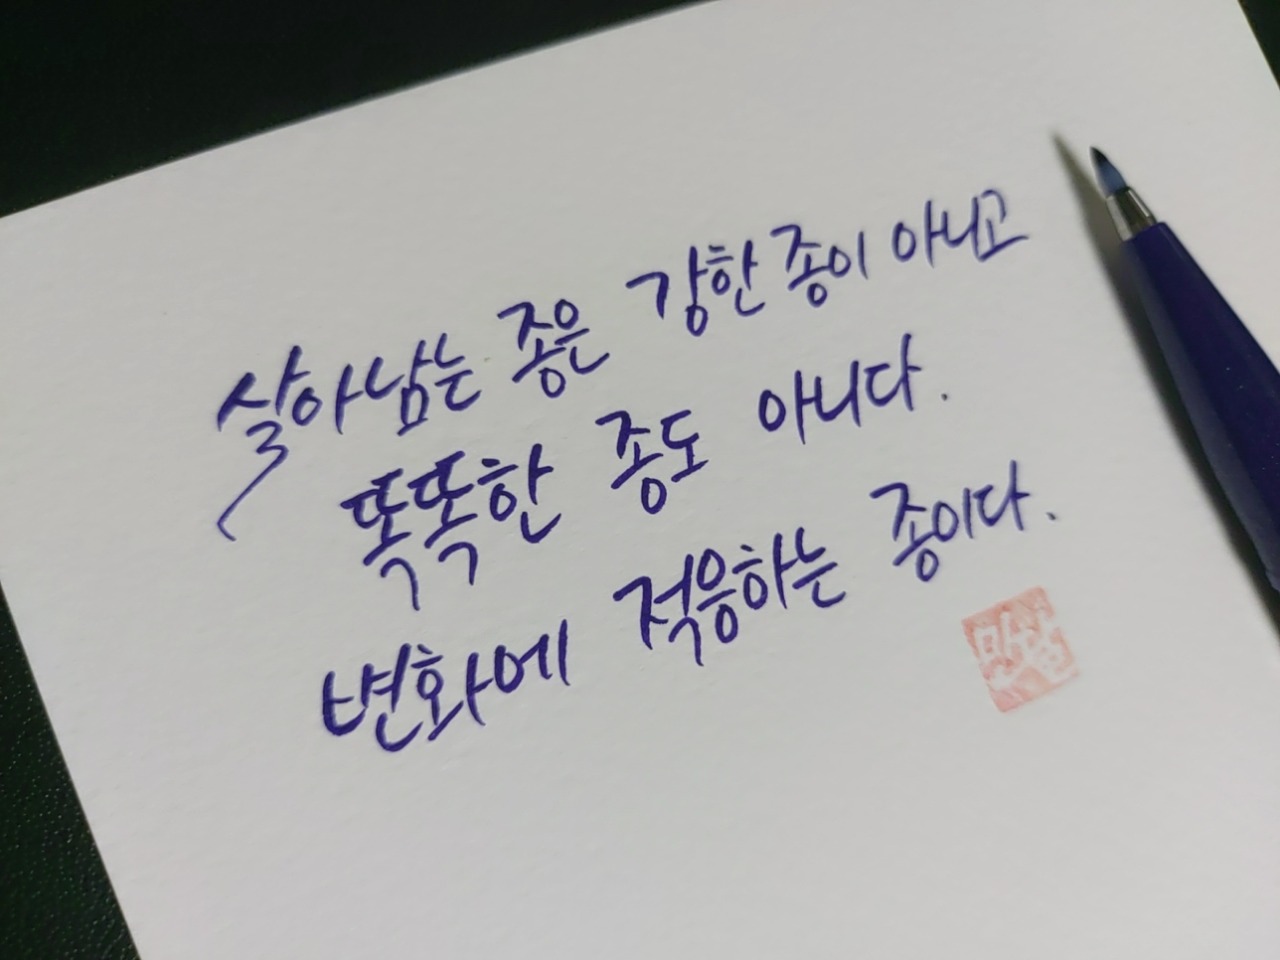 살아남는 종은 강한 종이 아니고
똑똑한 종도 아니다.
변화에 적응하는 종이다.